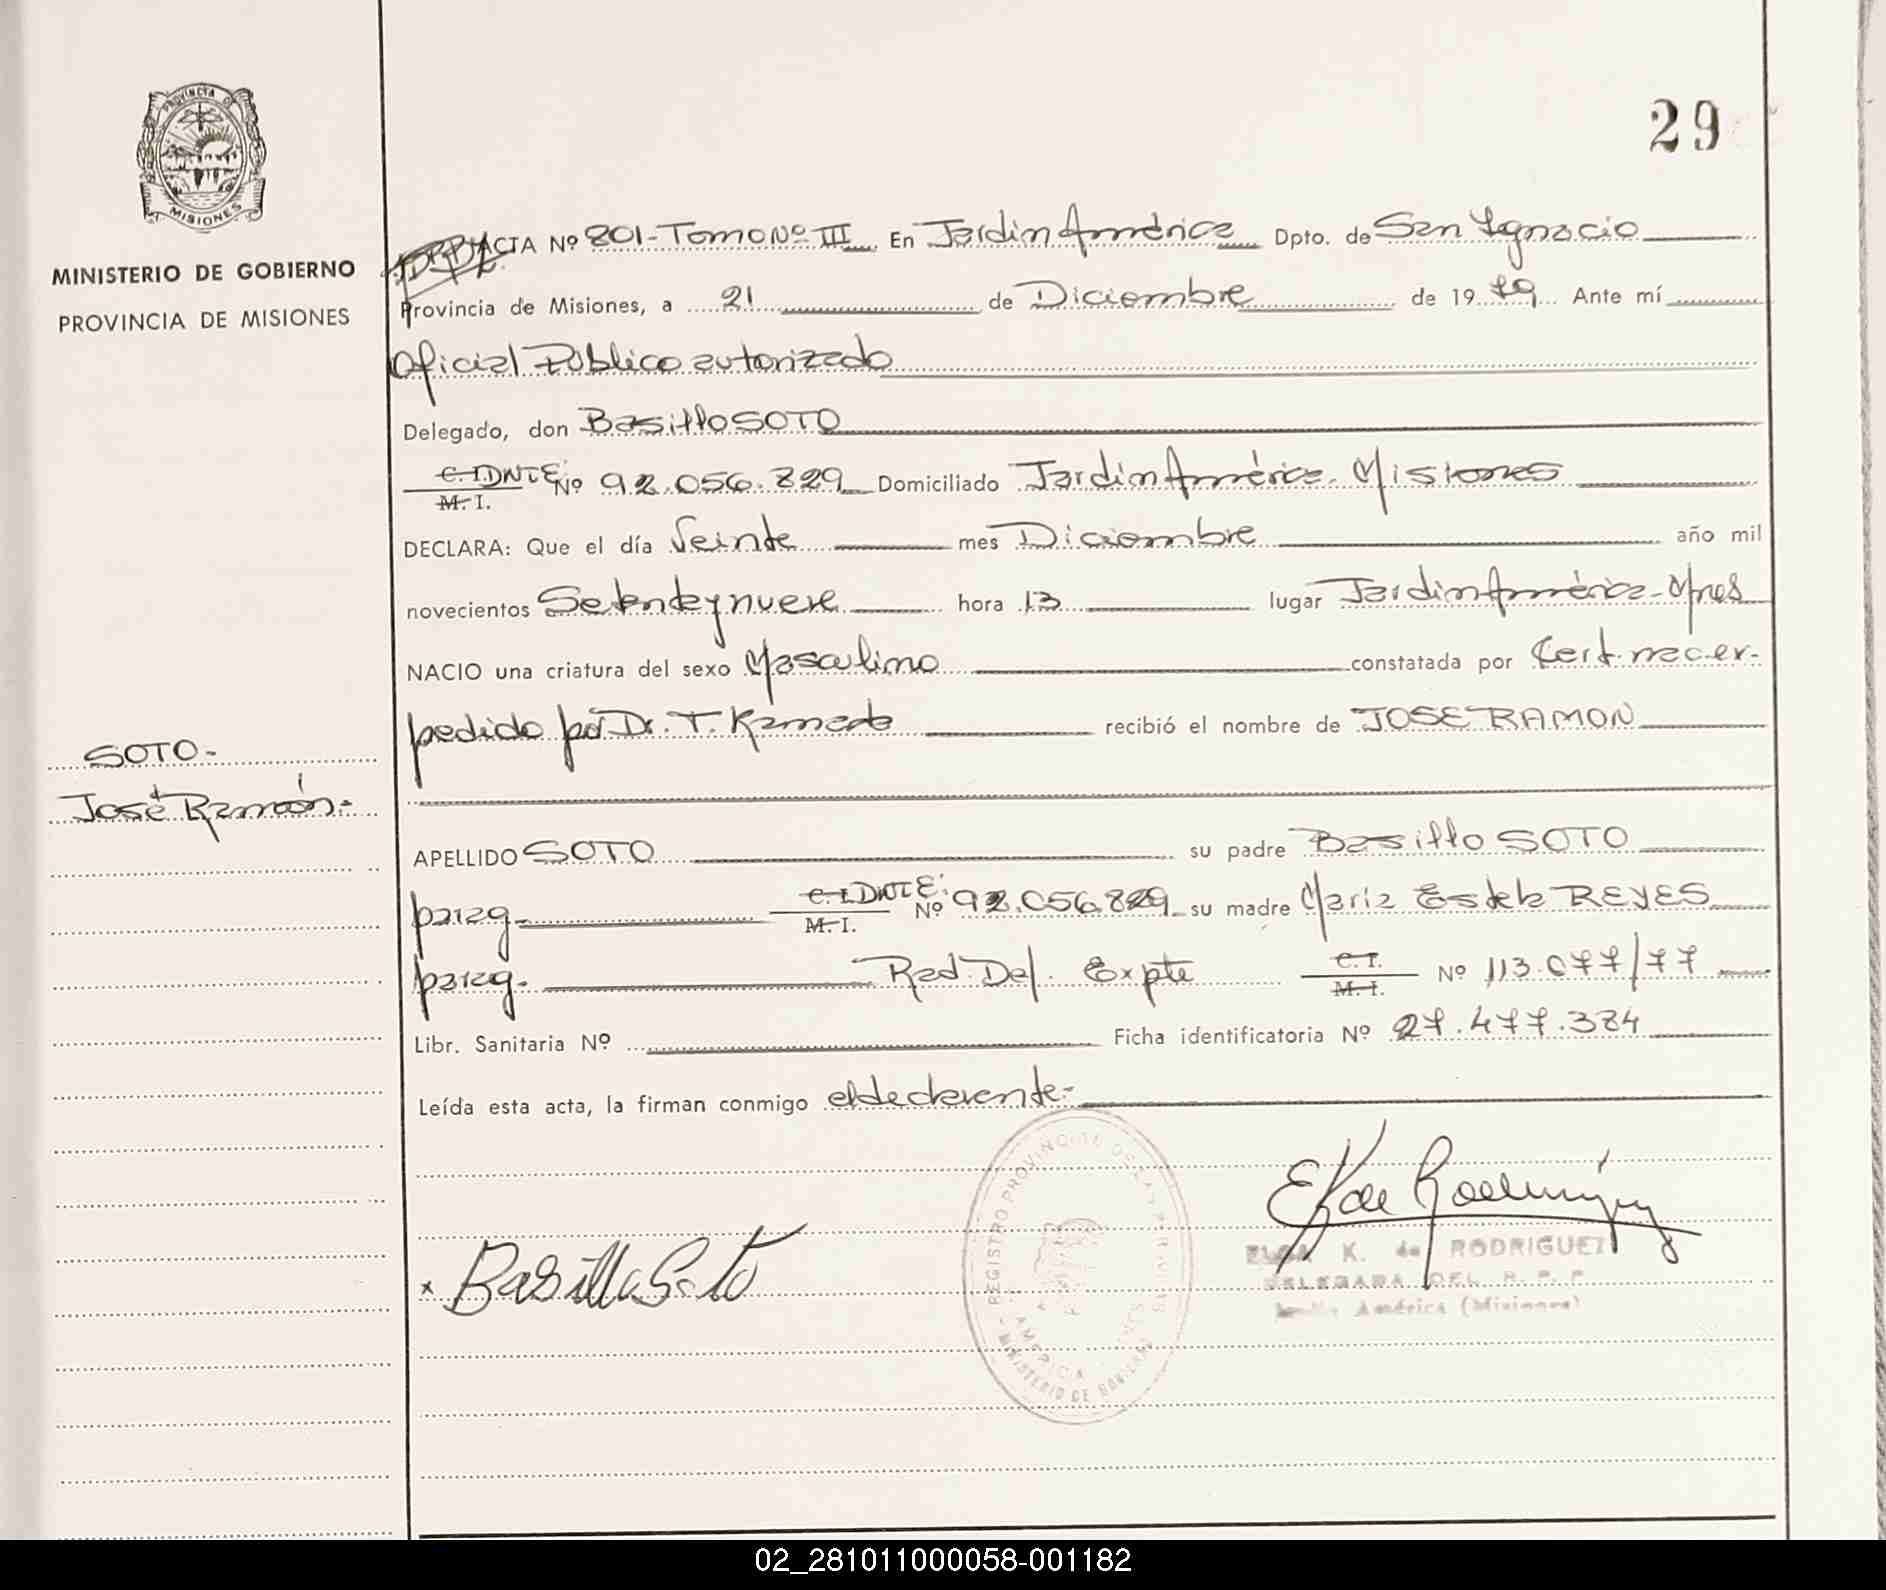 29
PROVINCIA DE
MISIONES
MINISTERIO DE GOBIERNO
PROVINCIA DE MISIONES
ACTA Nº 801-Tomo Nº III En Jardín América Dpto. de San Ignacio
Provincia de Misiones, a 21 de Diciembre de 1979 Ante mí
Oficial Público autorizado
Delegado, don Basillo SOTO
C.I. DNI E. Nº 92.056.829 Domiciliado Jardín América. Misiones
M. I.
DECLARA: Que el día Veinte mes Diciembre año mil
novecientos Setenta y nueve hora 13 lugar Jardín América-Mnes
NACIO una criatura del sexo Masculino constatada por Cert. nac. er-
pedido por Dr. T. Kameda recibió el nombre de JOSE RAMON
SOTO-
José Ramón.-
APELLIDO SOTO su padre Basillo SOTO
parag. C.I. DNI E. Nº 92.056.829 su madre María Estela REYES
M. I.
parag. Rad. Def. Expte C. I. Nº 113.077/77
M. I.
Libr. Sanitaria Nº Ficha identificatoria Nº 27.477.384
Leída esta acta, la firman conmigo el declarante.-
REGISTRO PROVINCIAL DE LAS PERSONAS
AMERICA
MINISTERIO DE GOBIERNO
E K de Rodríguez
x Basillo Soto
ELSA K. de RODRIGUEZ
DELEGADA DEL R. P. P.
América (Misiones)
02_281011000058-001182